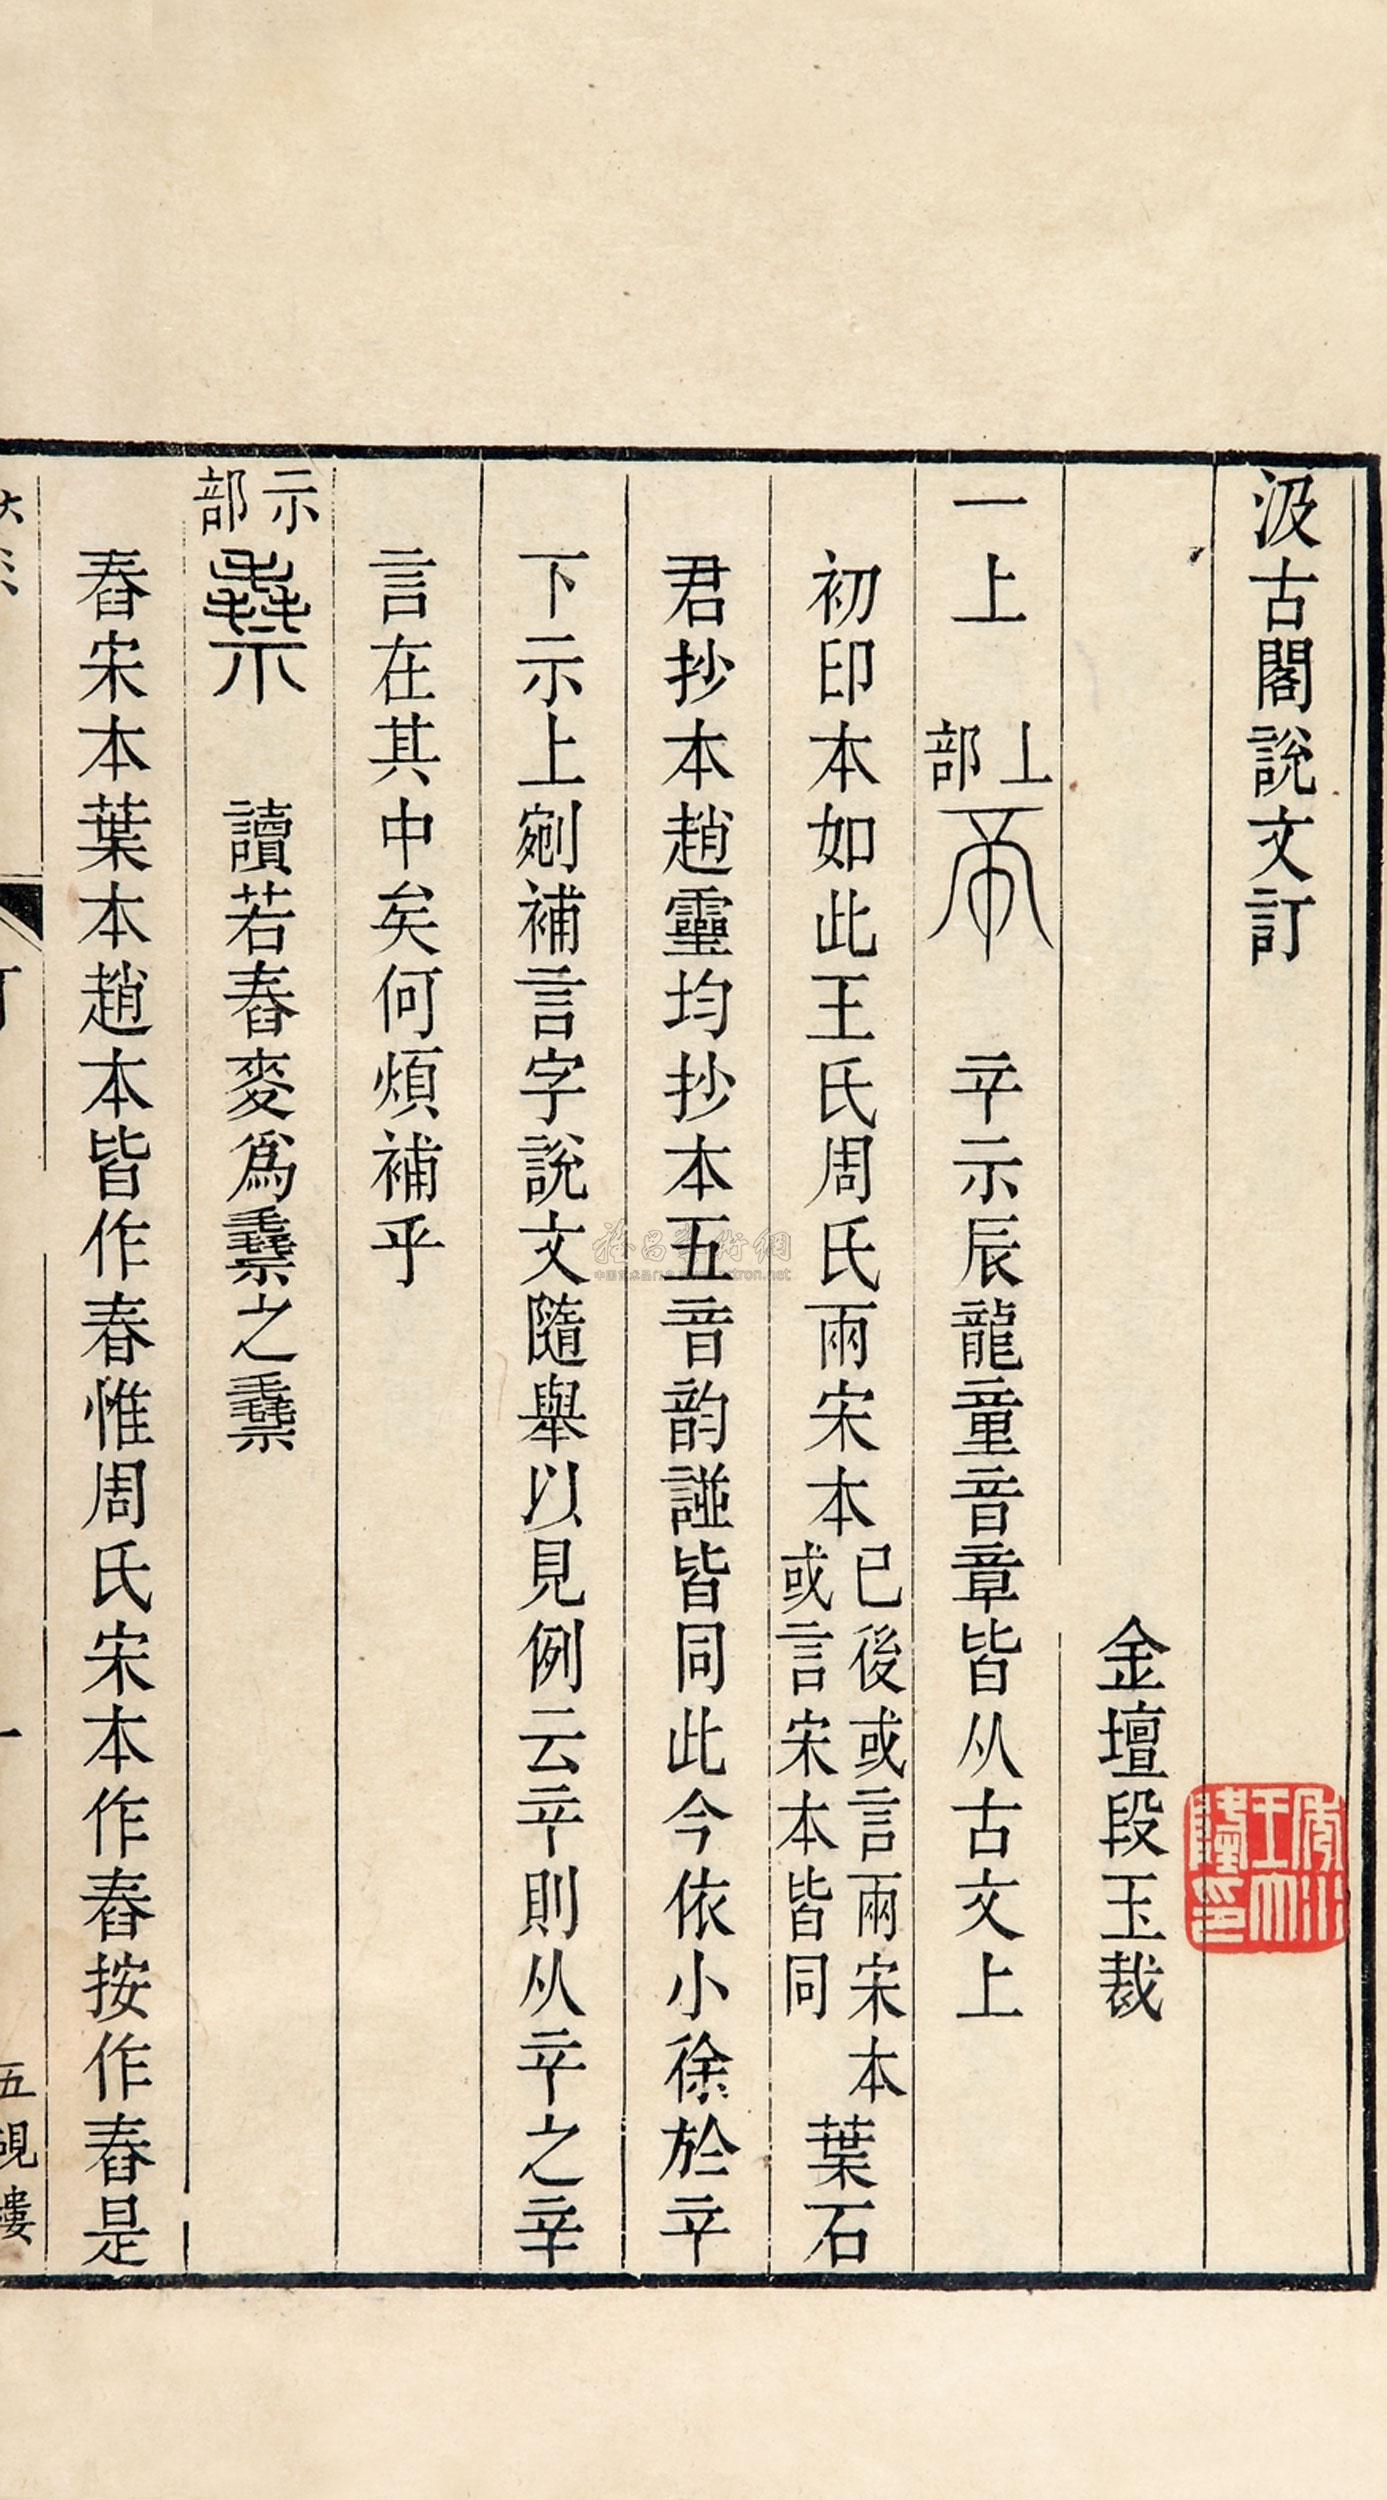 汲古閣說文訂
金壇段玉裁
一上 丄部 帝 䇂示辰龍童音章皆从古文上
初印本如此王氏周氏兩宋本 已後或言兩宋本或言宋本皆同 葉石
君抄本趙靈均抄本五音韵譜皆同此今依小徐於䇂
下示上剜補言字說文隨舉以見例云䇂則从䇂之辛
言在其中矣何煩補乎
示部 𥜻 讀若舂麥爲𥜻之𥜻
舂宋本葉本趙本皆作春惟周氏宋本作舂按作舂是
五硯樓